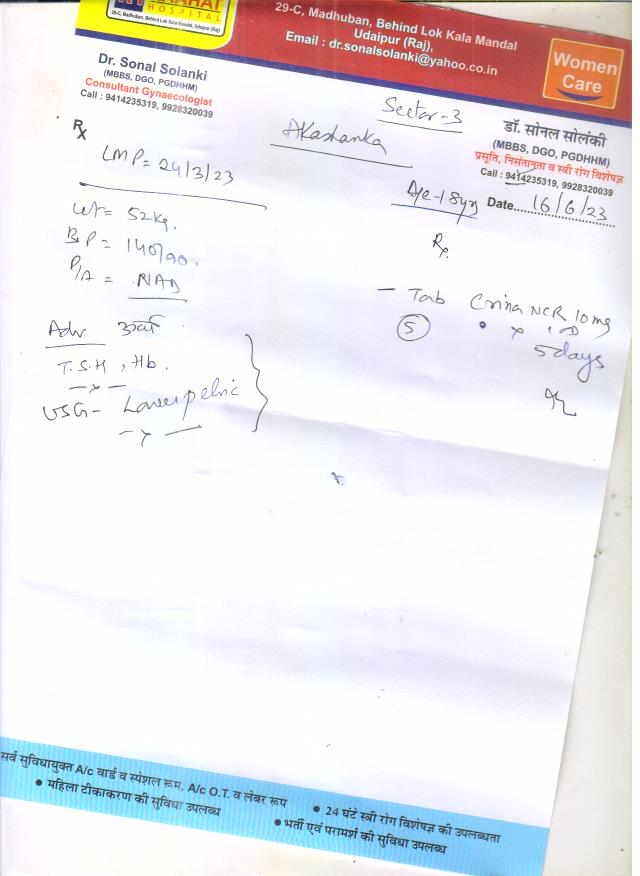 HOSPITAL
29-C, Madhuban, Behind Lok Kala Mandal, Udaipur (Raj)
29-C, Madhuban, Behind Lok Kala Mandal
Udaipur (Raj),
Email : dr.sonalsolanki@yahoo.co.in
Women
Care
Dr. Sonal Solanki
(MBBS, DGO, PGDHHM)
Consultant Gynaecologist
Call : 9414235319, 9928320039
Sector-3
Akashanka
डॉ. सोनल सोलंकी
(MBBS, DGO, PGDHHM)
प्रसूति, निसंतानता व स्त्री रोग विशेषज्ञ
Call : 9414235319, 9928320039
Rx
LMP = 24/3/23
A/e - 18yrs
Date....16/6/23
wt = 52kg.
BP = 140/90.
P/A = NAD
Rx
- Tab Crina NCR 10mg
5
x
5 days
Adv
T.S.H, Hb.
USG - Lower pelvic
सर्व सुविधायुक्त A/c वार्ड व स्पेशल रूम, A/c O.T. व लेबर रूप
• महिला टीकाकरण की सुविधा उपलब्ध
• 24 घंटे स्त्री रोग विशेषज्ञ की उपलब्धता
• भर्ती एवं परामर्श की सुविधा उपलब्ध